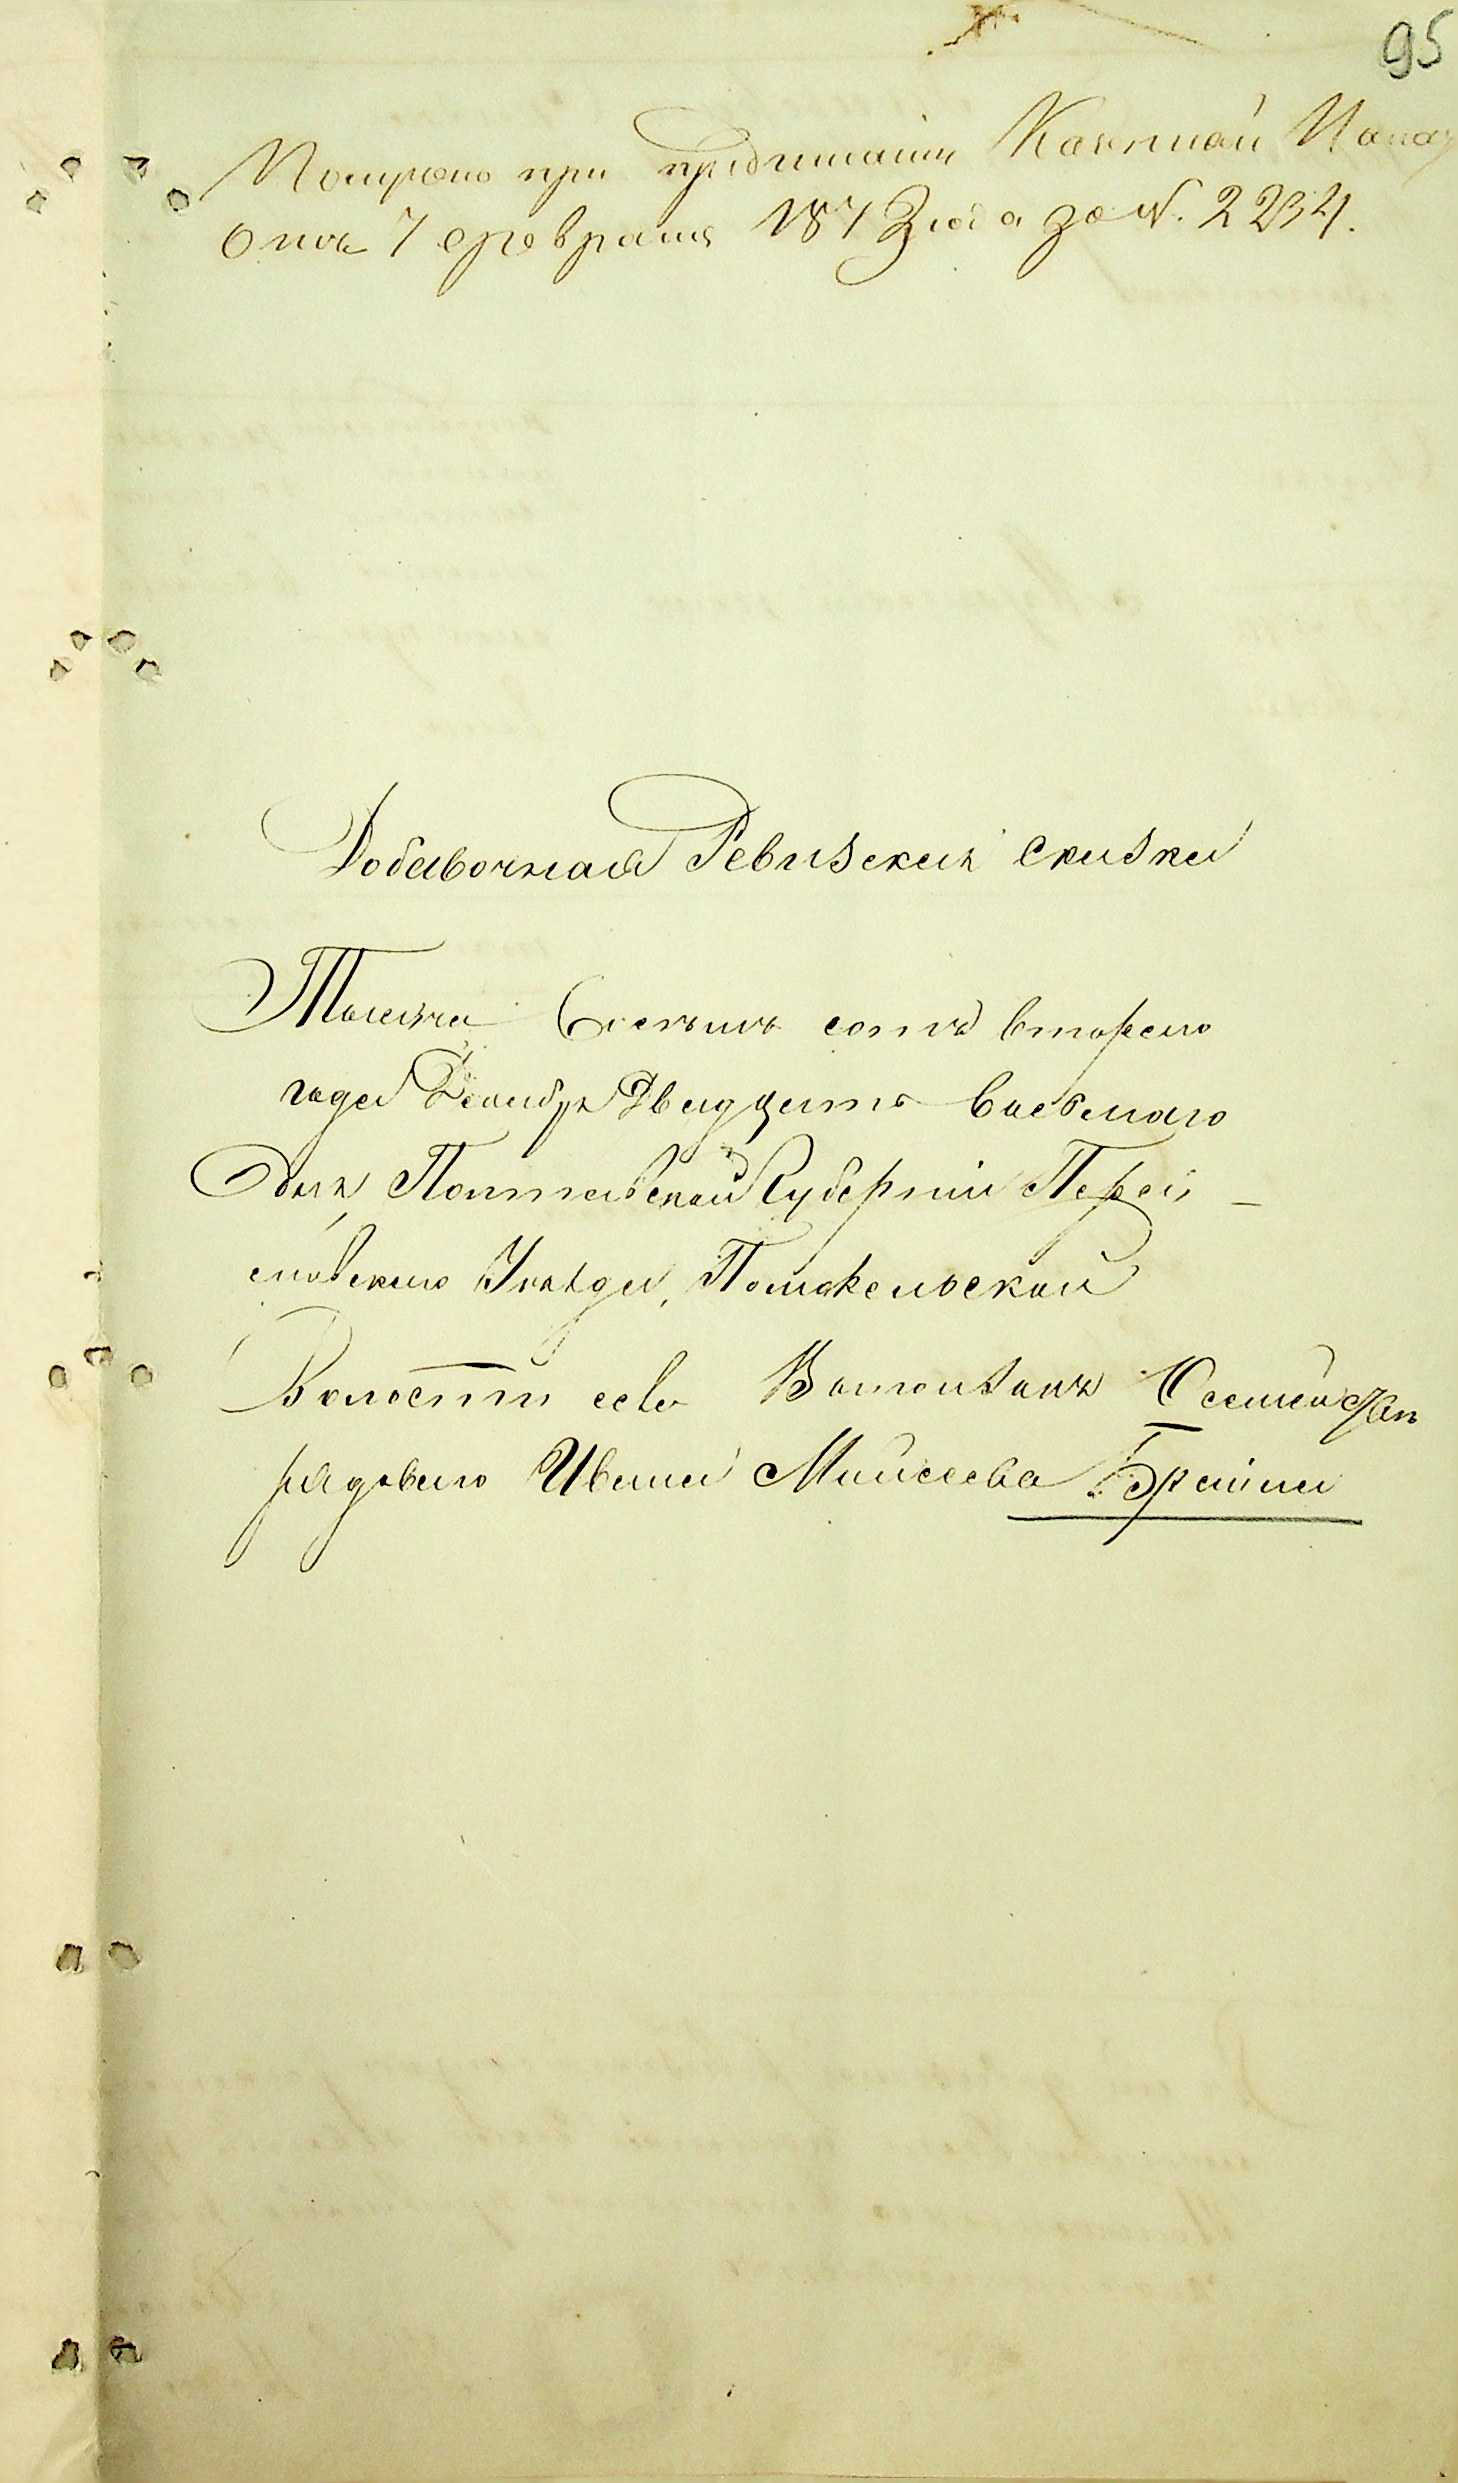 95
Получено при предписаніи Казенной Палаты
отъ 7 февраля 1873 года за №. 2234.
Добавочная Ревизская сказка
Тысяча Восемь сотъ второго
года Декабря Двадцать восьмаго
дня, Полтавской Губерніи Перея-
славскаго Уѣзда,
Волости села О семействѣ
рядоваго Ивана Мойсеева